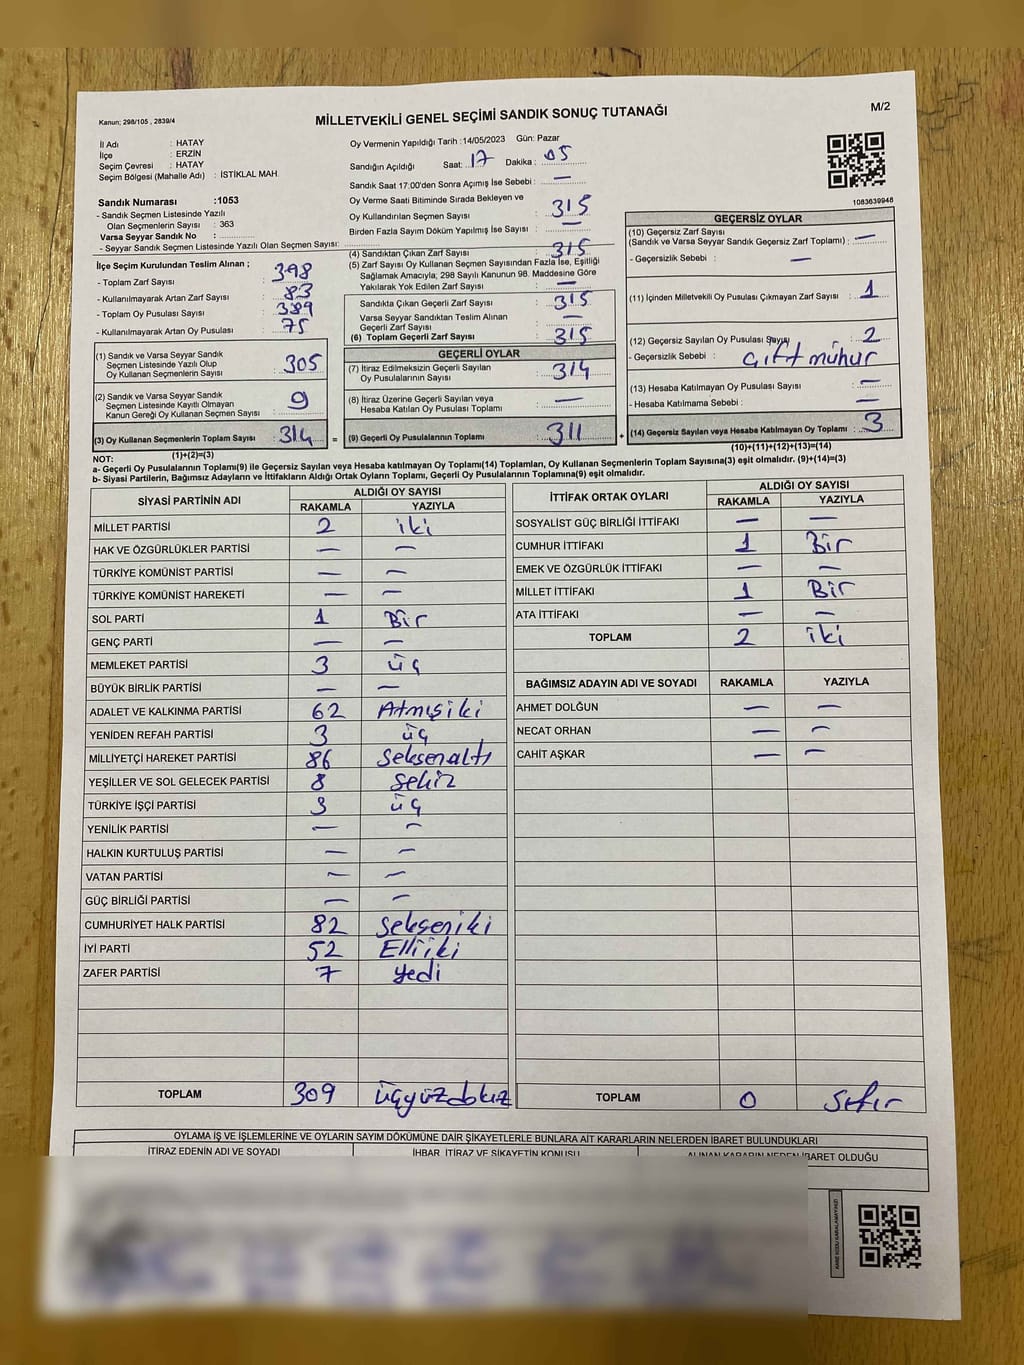 Kanun; 298/105 , 2839/4
MİLLETVEKİLİ GENEL SEÇİMİ SANDIK SONUÇ TUTANAĞI
M/2
İl Adı : HATAY
İlçe : ERZİN
Seçim Çevresi : HATAY
Seçim Bölgesi (Mahalle Adı) : İSTİKLAL MAH.
Sandık Numarası :1053
- Sandık Seçmen Listesinde Yazılı
Olan Seçmenlerin Sayısı : 363
Varsa Seyyar Sandık No :
- Seyyar Sandık Seçmen Listesinde Yazılı Olan Seçmen Sayısı:
Oy Vermenin Yapıldığı Tarih :14/05/2023 Gün: Pazar
Sandığın Açıldığı Saat: 17 Dakika : 05
Sandık Saat 17:00'den Sonra Açımış İse Sebebi : —
Oy Verme Saati Bitiminde Sırada Bekleyen ve
Oy Kullandırılan Seçmen Sayısı : 315
Birden Fazla Sayım Döküm Yapılmış İse Sayısı : —
1083639946
İlçe Seçim Kurulundan Teslim Alınan ;
- Toplam Zarf Sayısı : 398
- Kullanılmayarak Artan Zarf Sayısı : 83
- Toplam Oy Pusulası Sayısı : 389
- Kullanılmayarak Artan Oy Pusulası : 75
(1) Sandık ve Varsa Seyyar Sandık
Seçmen Listesinde Yazılı Olup
Oy Kullanan Seçmenlerin Sayısı : 305
(2) Sandık ve Varsa Seyyar Sandık
Seçmen Listesinde Kayıtlı Olmayan
Kanun Gereği Oy Kullanan Seçmen Sayısı : 9
(3) Oy Kullanan Seçmenlerin Toplam Sayısı : 314
(1)+(2)=(3)
(4) Sandıktan Çıkan Zarf Sayısı : 315
(5) Zarf Sayısı Oy Kullanan Seçmen Sayısından Fazla İse, Eşitliği
Sağlamak Amacıyla; 298 Sayılı Kanunun 98. Maddesine Göre
Yakılarak Yok Edilen Zarf Sayısı : —
Sandıkta Çıkan Geçerli Zarf Sayısı : 315
Varsa Seyyar Sandıktan Teslim Alınan
Geçerli Zarf Sayısı : —
(6) Toplam Geçerli Zarf Sayısı : 315
GEÇERLİ OYLAR
(7) İtiraz Edilmeksizin Geçerli Sayılan
Oy Pusulalarının Sayısı : 314
(8) İtiraz Üzerine Geçerli Sayılan veya
Hesaba Katılan Oy Pusulası Toplamı : —
= (9) Geçerli Oy Pusulalarının Toplamı : 311
GEÇERSİZ OYLAR
(10) Geçersiz Zarf Sayısı
(Sandık ve Varsa Seyyar Sandık Geçersiz Zarf Toplamı) : —
- Geçersizlik Sebebi : —
(11) İçinden Milletvekili Oy Pusulası Çıkmayan Zarf Sayısı : 1
(12) Geçersiz Sayılan Oy Pusulası Sayısı : 2
- Geçersizlik Sebebi : çift mühür
(13) Hesaba Katılmayan Oy Pusulası Sayısı : —
- Hesaba Katılmama Sebebi : —
+ (14) Geçersiz Sayılan veya Hesaba Katılmayan Oy Toplamı : 3
(10)+(11)+(12)+(13)=(14)
NOT:
a- Geçerli Oy Pusulalarının Toplamı(9) ile Geçersiz Sayılan veya Hesaba katılmayan Oy Toplamı(14) Toplamları, Oy Kullanan Seçmenlerin Toplam Sayısına(3) eşit olmalıdır. (9)+(14)=(3)
b- Siyasi Partilerin, Bağımsız Adayların ve İttifakların Aldığı Oyların Toplamı, Geçerli Oy Pusulalarının Toplamına(9) eşit olmalıdır.
SİYASİ PARTİNİN ADI ALDIĞI OY SAYISI
RAKAMLA YAZIYLA
MİLLET PARTİSİ 2 iki
HAK VE ÖZGÜRLÜKLER PARTİSİ — —
TÜRKİYE KOMÜNİST PARTİSİ — —
TÜRKİYE KOMÜNİST HAREKETİ — —
SOL PARTİ 1 Bir
GENÇ PARTİ — —
MEMLEKET PARTİSİ 3 üç
BÜYÜK BİRLİK PARTİSİ — —
ADALET VE KALKINMA PARTİSİ 62 Atmışiki
YENİDEN REFAH PARTİSİ 3 üç
MİLLİYETÇİ HAREKET PARTİSİ 86 Seksenaltı
YEŞİLLER VE SOL GELECEK PARTİSİ 8 Sekiz
TÜRKİYE İŞÇİ PARTİSİ 3 üç
YENİLİK PARTİSİ — —
HALKIN KURTULUŞ PARTİSİ — —
VATAN PARTİSİ — —
GÜÇ BİRLİĞİ PARTİSİ — —
CUMHURİYET HALK PARTİSİ 82 Sekseniki
İYİ PARTİ 52 Elliiki
ZAFER PARTİSİ 7 yedi
TOPLAM 309 üçyüzdokuz
İTTİFAK ORTAK OYLARI ALDIĞI OY SAYISI
RAKAMLA YAZIYLA
SOSYALİST GÜÇ BİRLİĞİ İTTİFAKI — —
CUMHUR İTTİFAKI 1 Bir
EMEK VE ÖZGÜRLÜK İTTİFAKI — —
MİLLET İTTİFAKI 1 Bir
ATA İTTİFAKI — —
TOPLAM 2 iki
BAĞIMSIZ ADAYIN ADI VE SOYADI RAKAMLA YAZIYLA
AHMET DOLĞUN — —
NECAT ORHAN — —
CAHİT AŞKAR — —
TOPLAM 0 Sıfır
OYLAMA İŞ VE İŞLEMLERİNE VE OYLARIN SAYIM DÖKÜMÜNE DAİR ŞİKAYETLERLE BUNLARA AİT KARARLARIN NELERDEN İBARET BULUNDUKLARI
İTİRAZ EDENİN ADI VE SOYADI İHBAR, İTİRAZ VE ŞİKAYETİN KONUSU ALINAN KARARIN NEDEN İBARET OLDUĞU